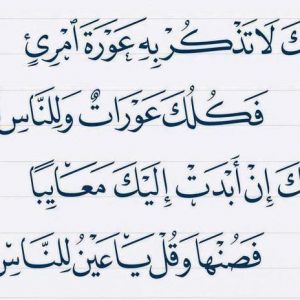 كَ لَا تَذْكُرْ بِهِ عَوْرَةَ ٱمْرِئٍ
فَكُلُّكَ عَوْرَاتٌ وَلِلنَّاسِ
كَ إِنْ أَبْدَتْ إِلَيْكَ مَعَايِبًا
فَصُنْهَا وَقُلْ يَا عَيْنُ لِلنَّاسِ